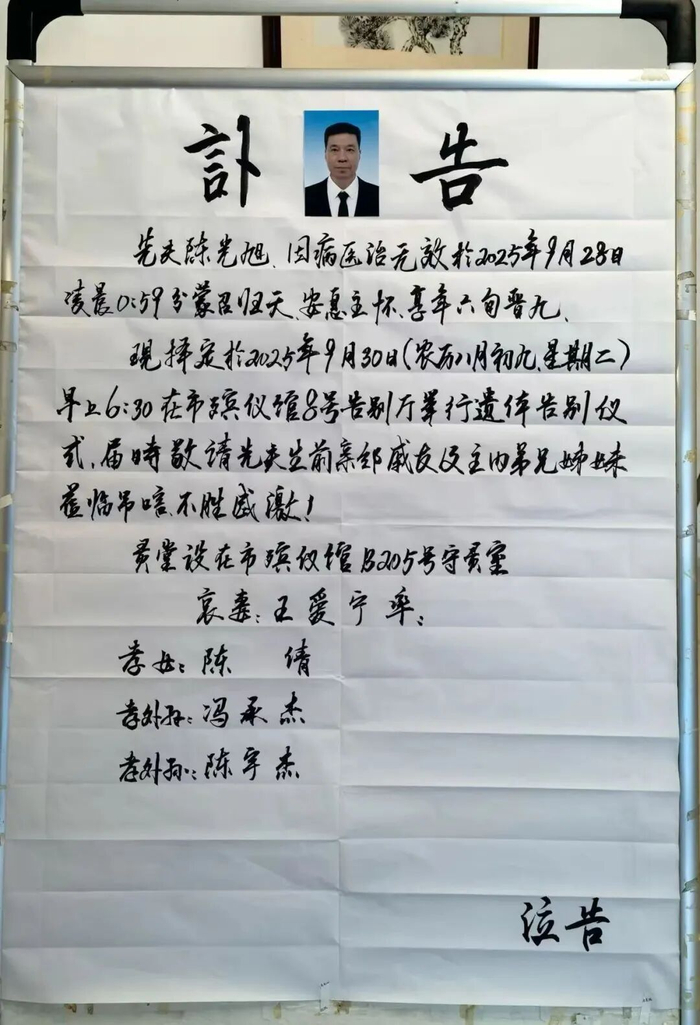 訃告
先夫陈光旭、因病医治无效於2025年9月28日
凌晨0:59分蒙召归天、安息主怀、享年六旬晋九、
现择定於2025年9月30日(农历八月初九、星期二)
早上6:30在市殡仪馆8号告别厅举行遗体告别仪
式、届時敬请先夫生前亲邻戚友及主内弟兄姊妹
莅临吊唁、不胜感激!
灵堂设在市殡仪馆B205号守灵室
哀妻:王爱宁率:
孝女:陈 倩
孝外孙:冯承杰
孝外孙:陈宇杰
泣告